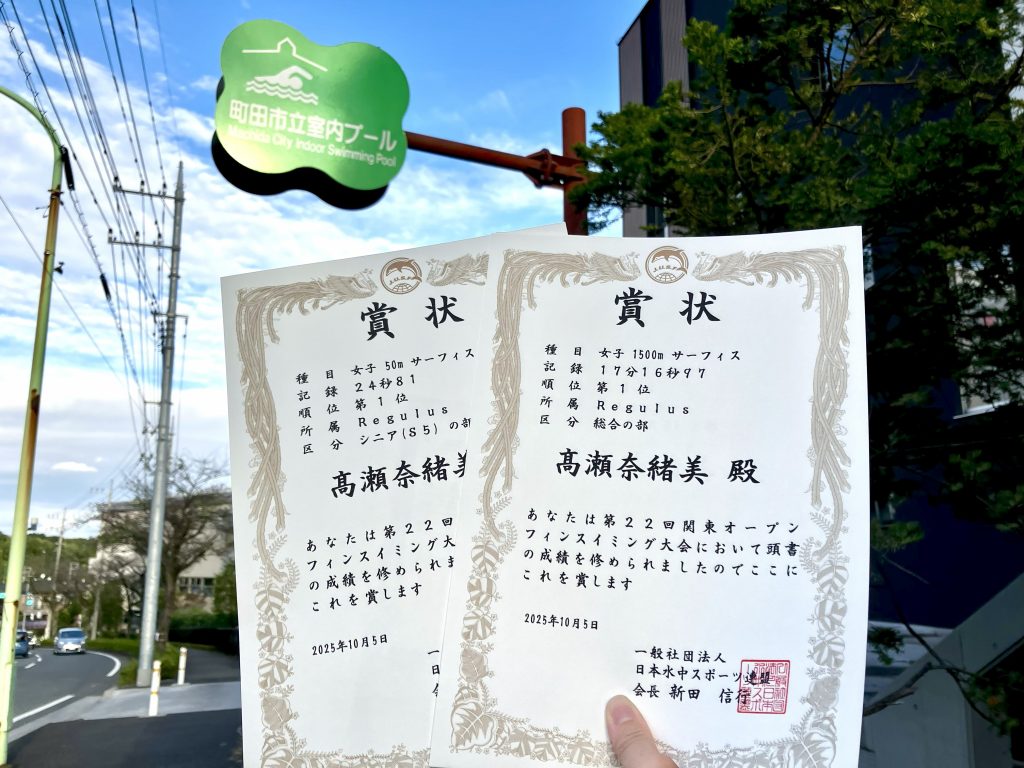 町田市立室内プール
Machida City Indoor Swimming Pool
賞状
種目 女子 50m サーフィス
記録 24秒81
順位 第1位
所属 Regulus
区分 シニア(S5) の部
髙瀬奈緒美
あなたは第22回
フィンスイミング大
の成績を修められま
これを賞します
2025年10月5日
賞状
種目 女子 1500m サーフィス
記録 17分16秒97
順位 第1位
所属 Regulus
区分 総合の部
髙瀬奈緒美 殿
あなたは第22回関東オープン
フィンスイミング大会において頭書
の成績を修められましたのでここに
これを賞します
2025年10月5日
一般社団法人
日本水中スポーツ連盟
会長 新田 信行